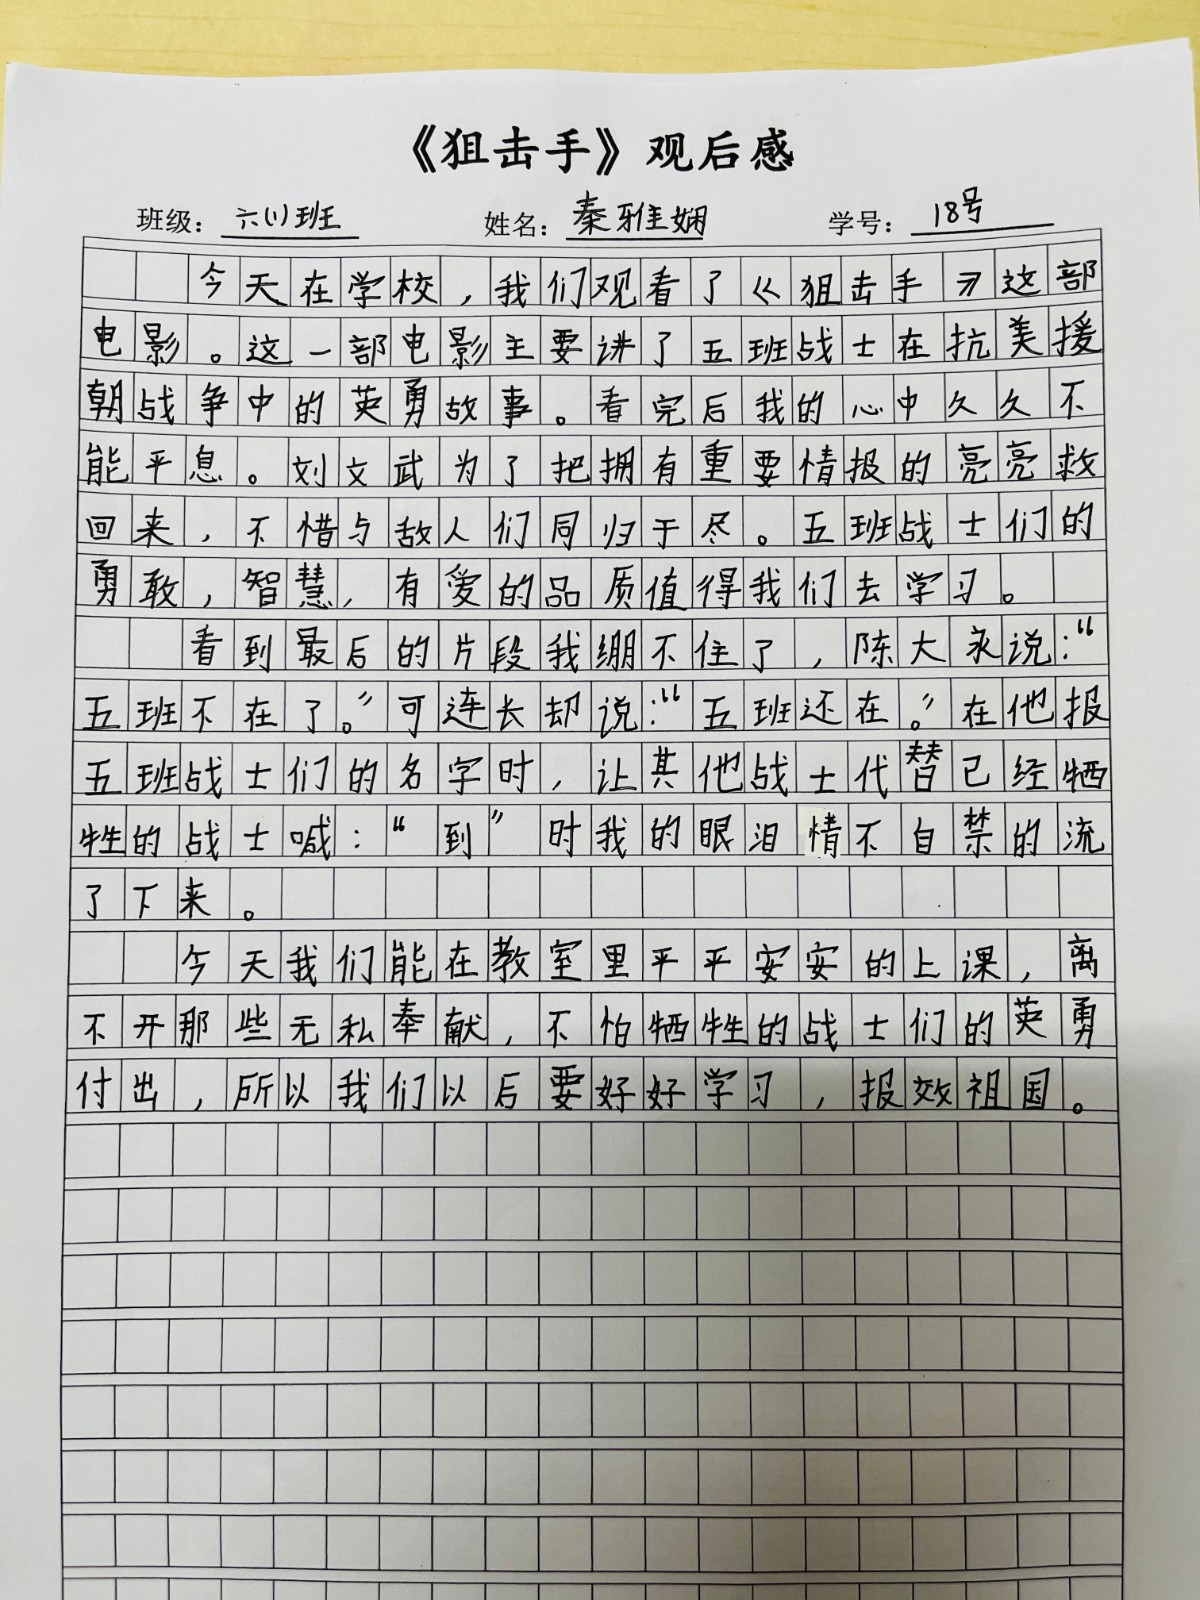 《狙击手》观后感
班级：六(1)班 姓名：秦雅娴 学号：18号
今天在学校，我们观看了《狙击手》这部
电影。这一部电影主要讲了五班战士在抗美援
朝战争中的英勇故事。看完后我的心中久久不
能平息。刘文武为了把拥有重要情报的亮亮救
回来，不惜与敌人们同归于尽。五班战士们的
勇敢，智慧，有爱的品质值得我们去学习。
看到最后的片段我绷不住了，陈大永说：“
五班不在了。”可连长却说：“五班还在。”在他报
五班战士们的名字时，让其他战士代替已经牺
牲的战士喊：“到”时我的眼泪情不自禁的流
了下来。
今天我们能在教室里平平安安的上课，离
不开那些无私奉献，不怕牺牲的战士们的英勇
付出，所以我们以后要好好学习，报效祖国。